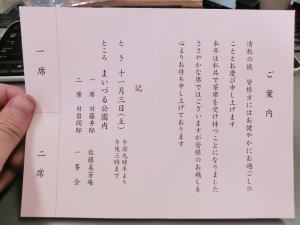 ご案内
清秋の候 皆様方にはお健やかにお過ごしの
こととお慶び申し上げます
本年は私共で茶席を受け持つことになりました
ささやかな席ではございますが皆様のお越しを
心よりお待ち申し上げております
記
とき 十一月三日(土) 午前九時半より
午後三時まで
ところ まいづる公園内
一席 旧藤井邸 佐藤美芳庵
二席 旧岩間邸 一峯会
一席
二席